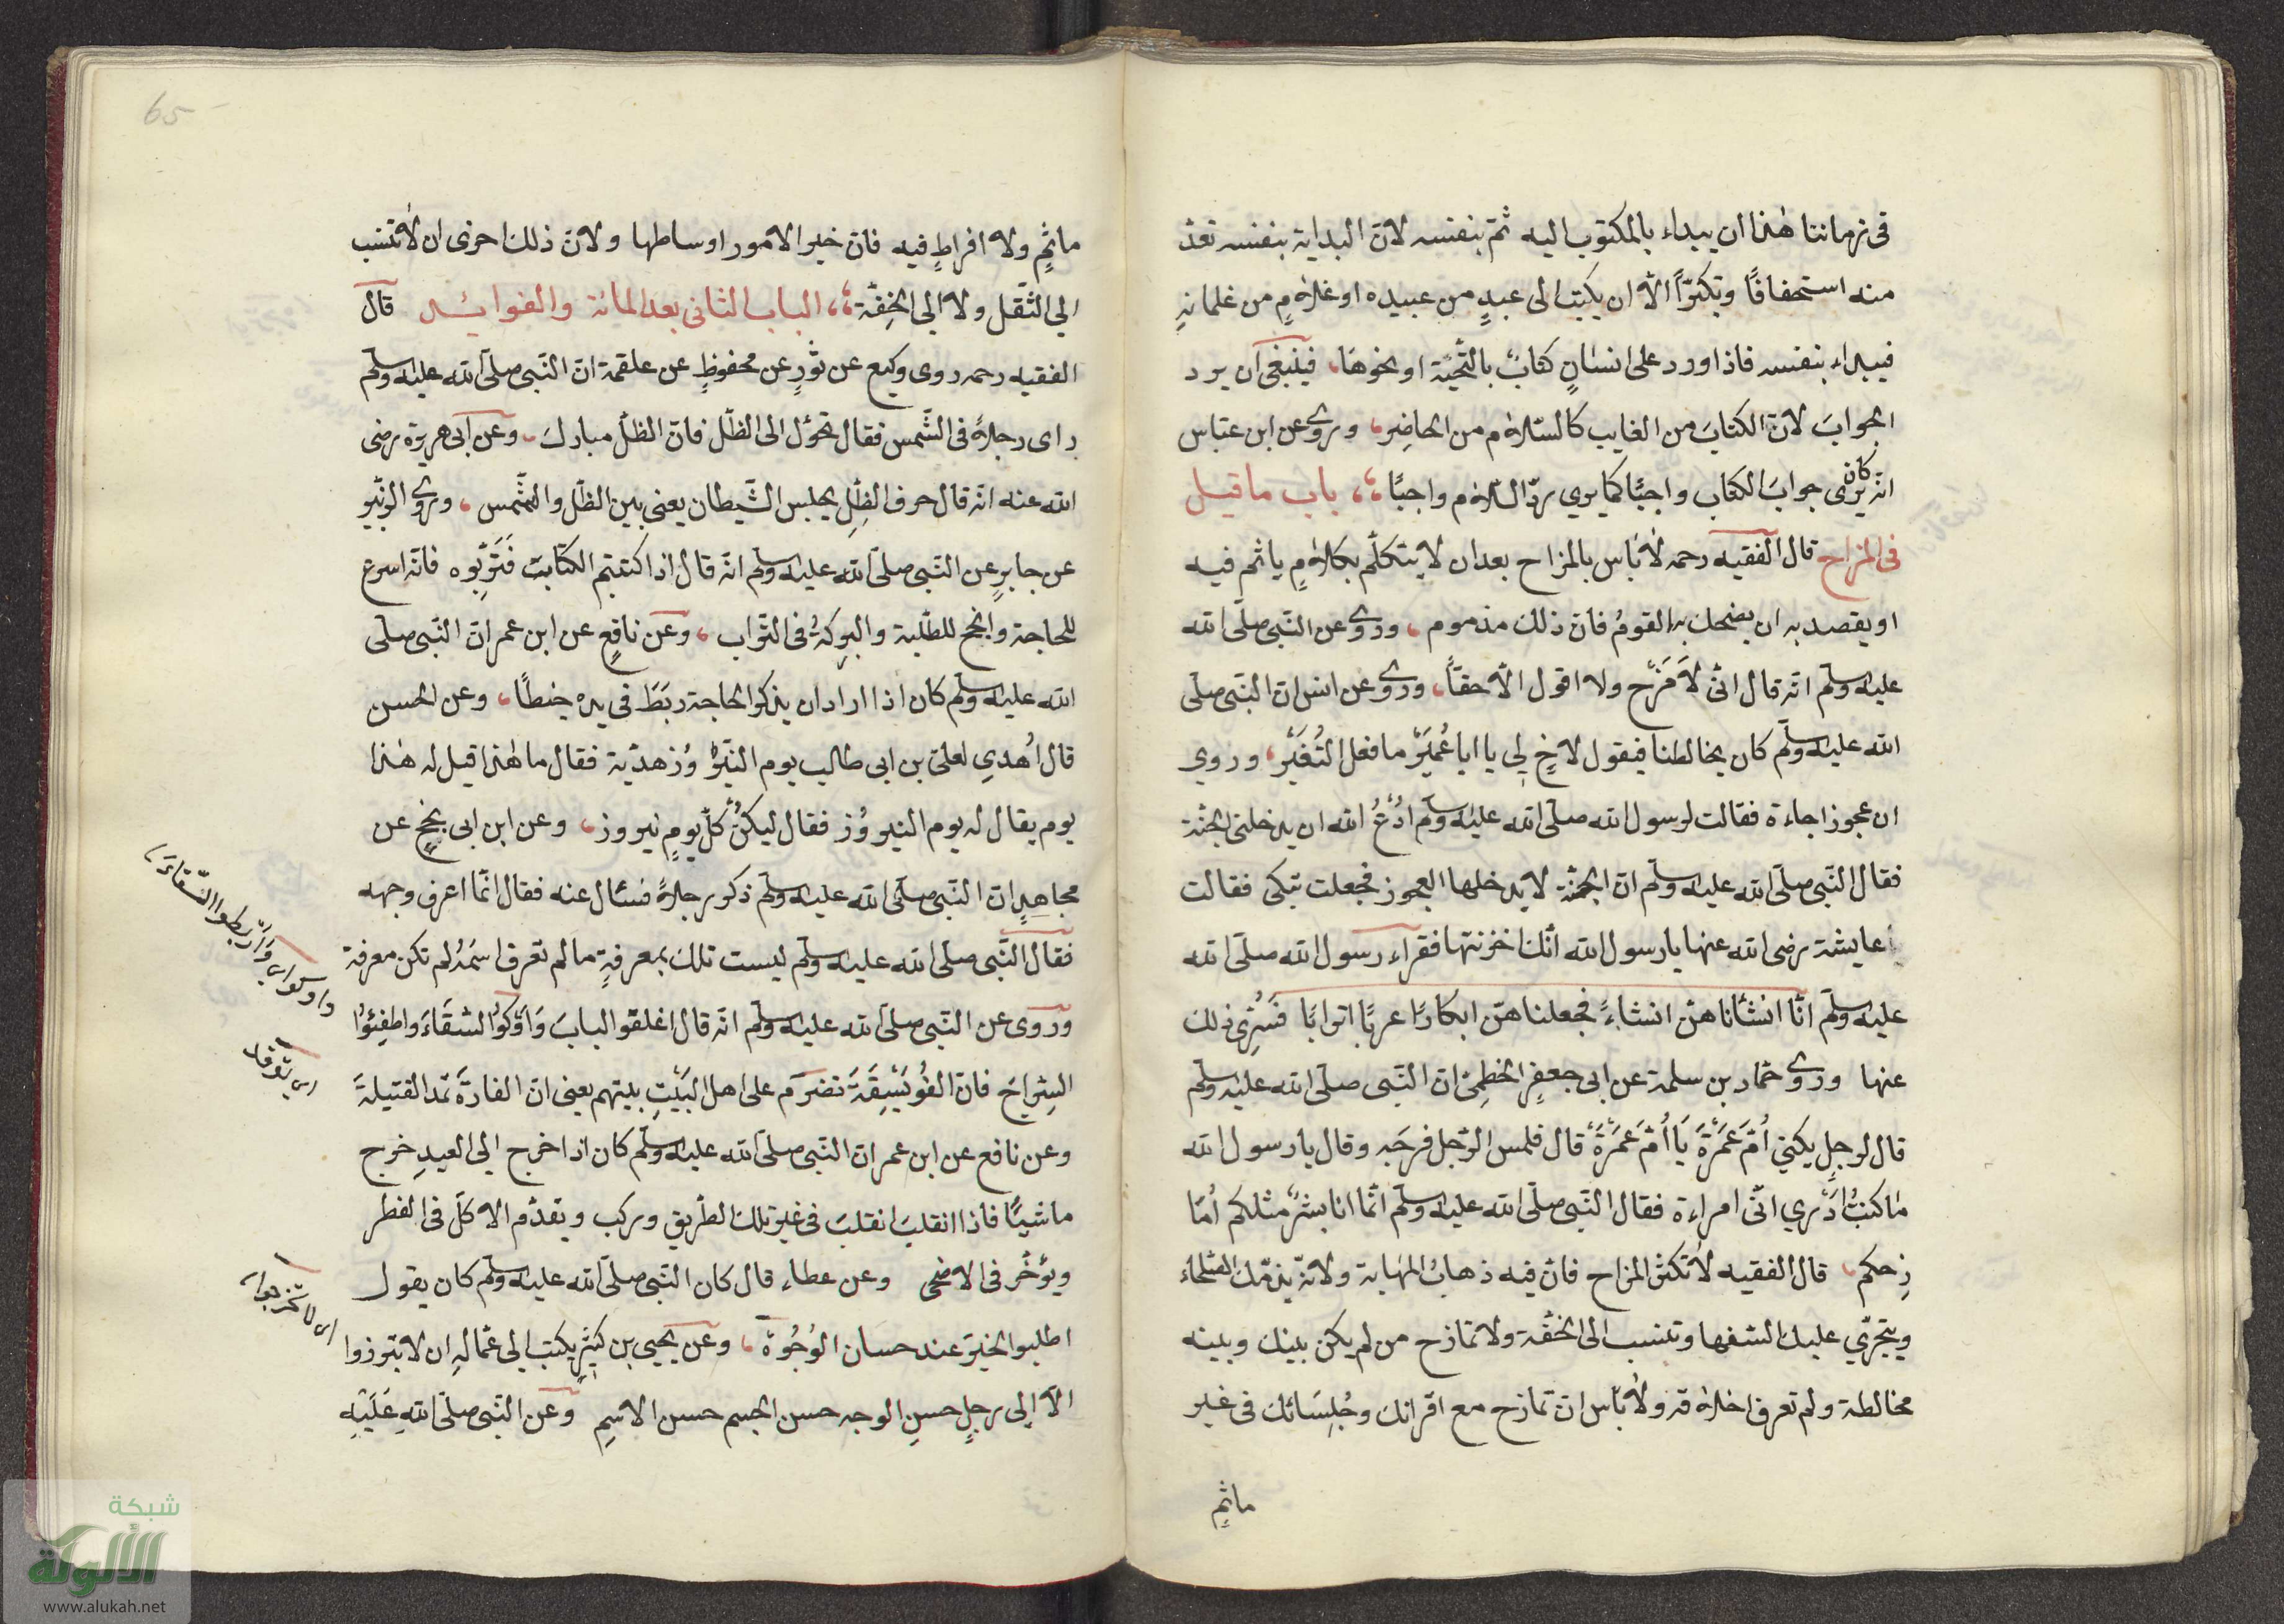 فى زماننا هٰذا ان يبداء بالمكتوب اليه ثمّ بنفسه لانّ البداية بنفسه تعدّ
منه استخفافًا وتكبّرًا الّا ان يكتب الى عبدٍ من عبيده او غلامٍ من غلمانهِ
فيبداء بنفسه فاذا ورد على انسانٍ كتابٌ بالتّحيّة او نحوهَا، فينبغى ان يرد
الجوابَ لانّ الكتابَ من الغايب كالسّلام من الحاضِر، وروُى عن ابن عبّاس
انّه كان يرى جوابَ الكتاب واجبًا كما يري ردّ السّلام واجبًا، باب ما قيل
فى المزاح قال الفقيه رحمه لابَاس بالمزاح بعد ان لا يتكلّم بكلامٍ ياثم فيه
او يقصد به ان يضحك به القومُ فانّ ذلك مذموم، وروُى عن النّبى صلّى الله
عليه وسلّم انّه قال انّى لَاَمْزَح ولا اقول الّا حقًّا، وروُى عن انس انّ النّبى صلّى
الله عليه وسلّم كان يخالطنا فيقول لاخٍ لِى يا ابا عُمَيْر ما فعل النُّغَيْر، وروي
ان عجوزا جاءة فقالت لرسول الله صلّى الله عليه وسلّم ادْعُ الله ان يدخلنى الجنّة
فقال النّبى صلّى الله عليه وسلّم انّ الجنّة لا يدخلها العجوز فجعلت تبكى فقالت
عايشة رضى الله عنها يا رسول الله انّك خزنتها فقراء رسول الله صلّى الله
عليه وسلّم انّا انشأناهنّ انشاءً فجعلناهنّ ابكارًا عربًا اترابًا فسُرّى ذلك
عنها وروُى حمّاد بن سلمة عن ابى جعفرٍ الخطمِىّ انّ النّبى صلّى الله عليه وسلّم
قال لرجلٍ يكنىّ اُمَّ عَمْرَةَ يَا اُمَّ عَمْرَةَ قال فلمس الرّجل فرجَه وقال يا رسول الله
مٰا كنتُ اَدْري انّى امراءة فقال النّبى صلّى الله عليه وسلّم انّما انا بشرٌ مثلكم اُمَا
زِحكم، قال الفقيه لَا تكثر المزاح فانّ فيه ذهابُ المهابة ولانّه يذمّك الصّلحاء
ويتجرّي عليك السّفهاء وتنسب الى الخفّة ولا تمازح من لم يكن بينك وبينه
مخالطة ولم تعرف اخلاقه ولا بَاس ان تمازح مع اقرانك وجُلَسَائك فى غير
ماثمٍ
65
ماثمٍ ولا افراطٍ فيه فانّ خير الامور اوساطها ولانّ ذلك احرى ان لا تنسب
الي الثّقل ولا الى الخِفّة، الباب الثانى بعد المائة والفوايد قال
الفقيه رحمه روى وكيع عن ثورٍ عن محفوظٍ عن علقمة انّ النّبى صلّى الله عليه وسلّم
راى رجلًا فى الشّمس فقال تحوّل الى الظّل فانّ الظلّ مبارك، وعن ابى هريرة رضى
الله عنه انّه قال حرف الظِلِّ يجلس الشّيطان يعنى بين الظلّ والشّمس، وروُى الزبير
عن جابرٍ عن النّبى صلّى الله عليه وسلّم انّه قال اذا كتبتم الكتابَ فَتَرّبُوه فانّه اسرع
للحاجة وانجح للطلبة والبركةُ فى التّراب، وعن نافعٍ عن ابن عمر انّ النّبى صلّى
الله عليه وسلّم كان اذا اراد ان يذكر الحاجة ربَطَ فى يده خيطًا، وعن الحسن
قال اُهدي لعلىّ بن ابى طالب يوم النّيرُوْز هديّة فقال ما هٰذا قيل له هٰذا
يوم يقال له يوم النيروُز فقال ليكنْ كلّ يومٍ نيروز، وعن ابن ابى نجحٍ عن
مجاهدٍ انّ النّبى صلّى الله عليه وسلّم ذكر رجلًا فسُئال عنه فقال انّما اعرف وجهه
فقال النّبى صلّى الله عليه وسلّم ليست تلك بمعرفةٍ ما لم تعرف اسمَهُ لم تكن معرفة
وروى عن النّبى صلّى الله عليه وسلّم انّه قال اغلقوا البابَ وَاَوْكوا السّقَاءَ واطفِئُوا
السِّراجَ فانّ الفُوَيْسِقَةَ تضرّم على اهل البَيْتِ بيتهم يعنى انّ الفارةَ تمدّ الفتيلةَ
وعن نافع عن ابن عمر انّ النّبى صلّى الله عليه وسلّم كان اذا خرج الى العيدِ خرج
ماشيًا فاذا انقلبَ انقلبَ فى غير تلك الطّريق وركب ويقدّم الاكلّ فى الفطر
ويؤخّر فى الاضحٰى وعن عطاء قال كان النّبى صلّى الله عليه وسلّم كان يقول
اطلبوا الخيرَ عند حسان الوُجُوْه، وعن يحيى بن كثيرٍ يكتب الى عمّالهِ ان لا تبرزوا
الّا الى رجلٍ حسنِ الوجه حسن الجسم حسن الاسمِ وعن النّبى صلّى اللهِ عَلَيْهِ
واوكوا اى وَاربطوا السّقاءَ،
اى توقد
اى لا تخرجوا،
شبكة
الألوكة
www.alukah.net